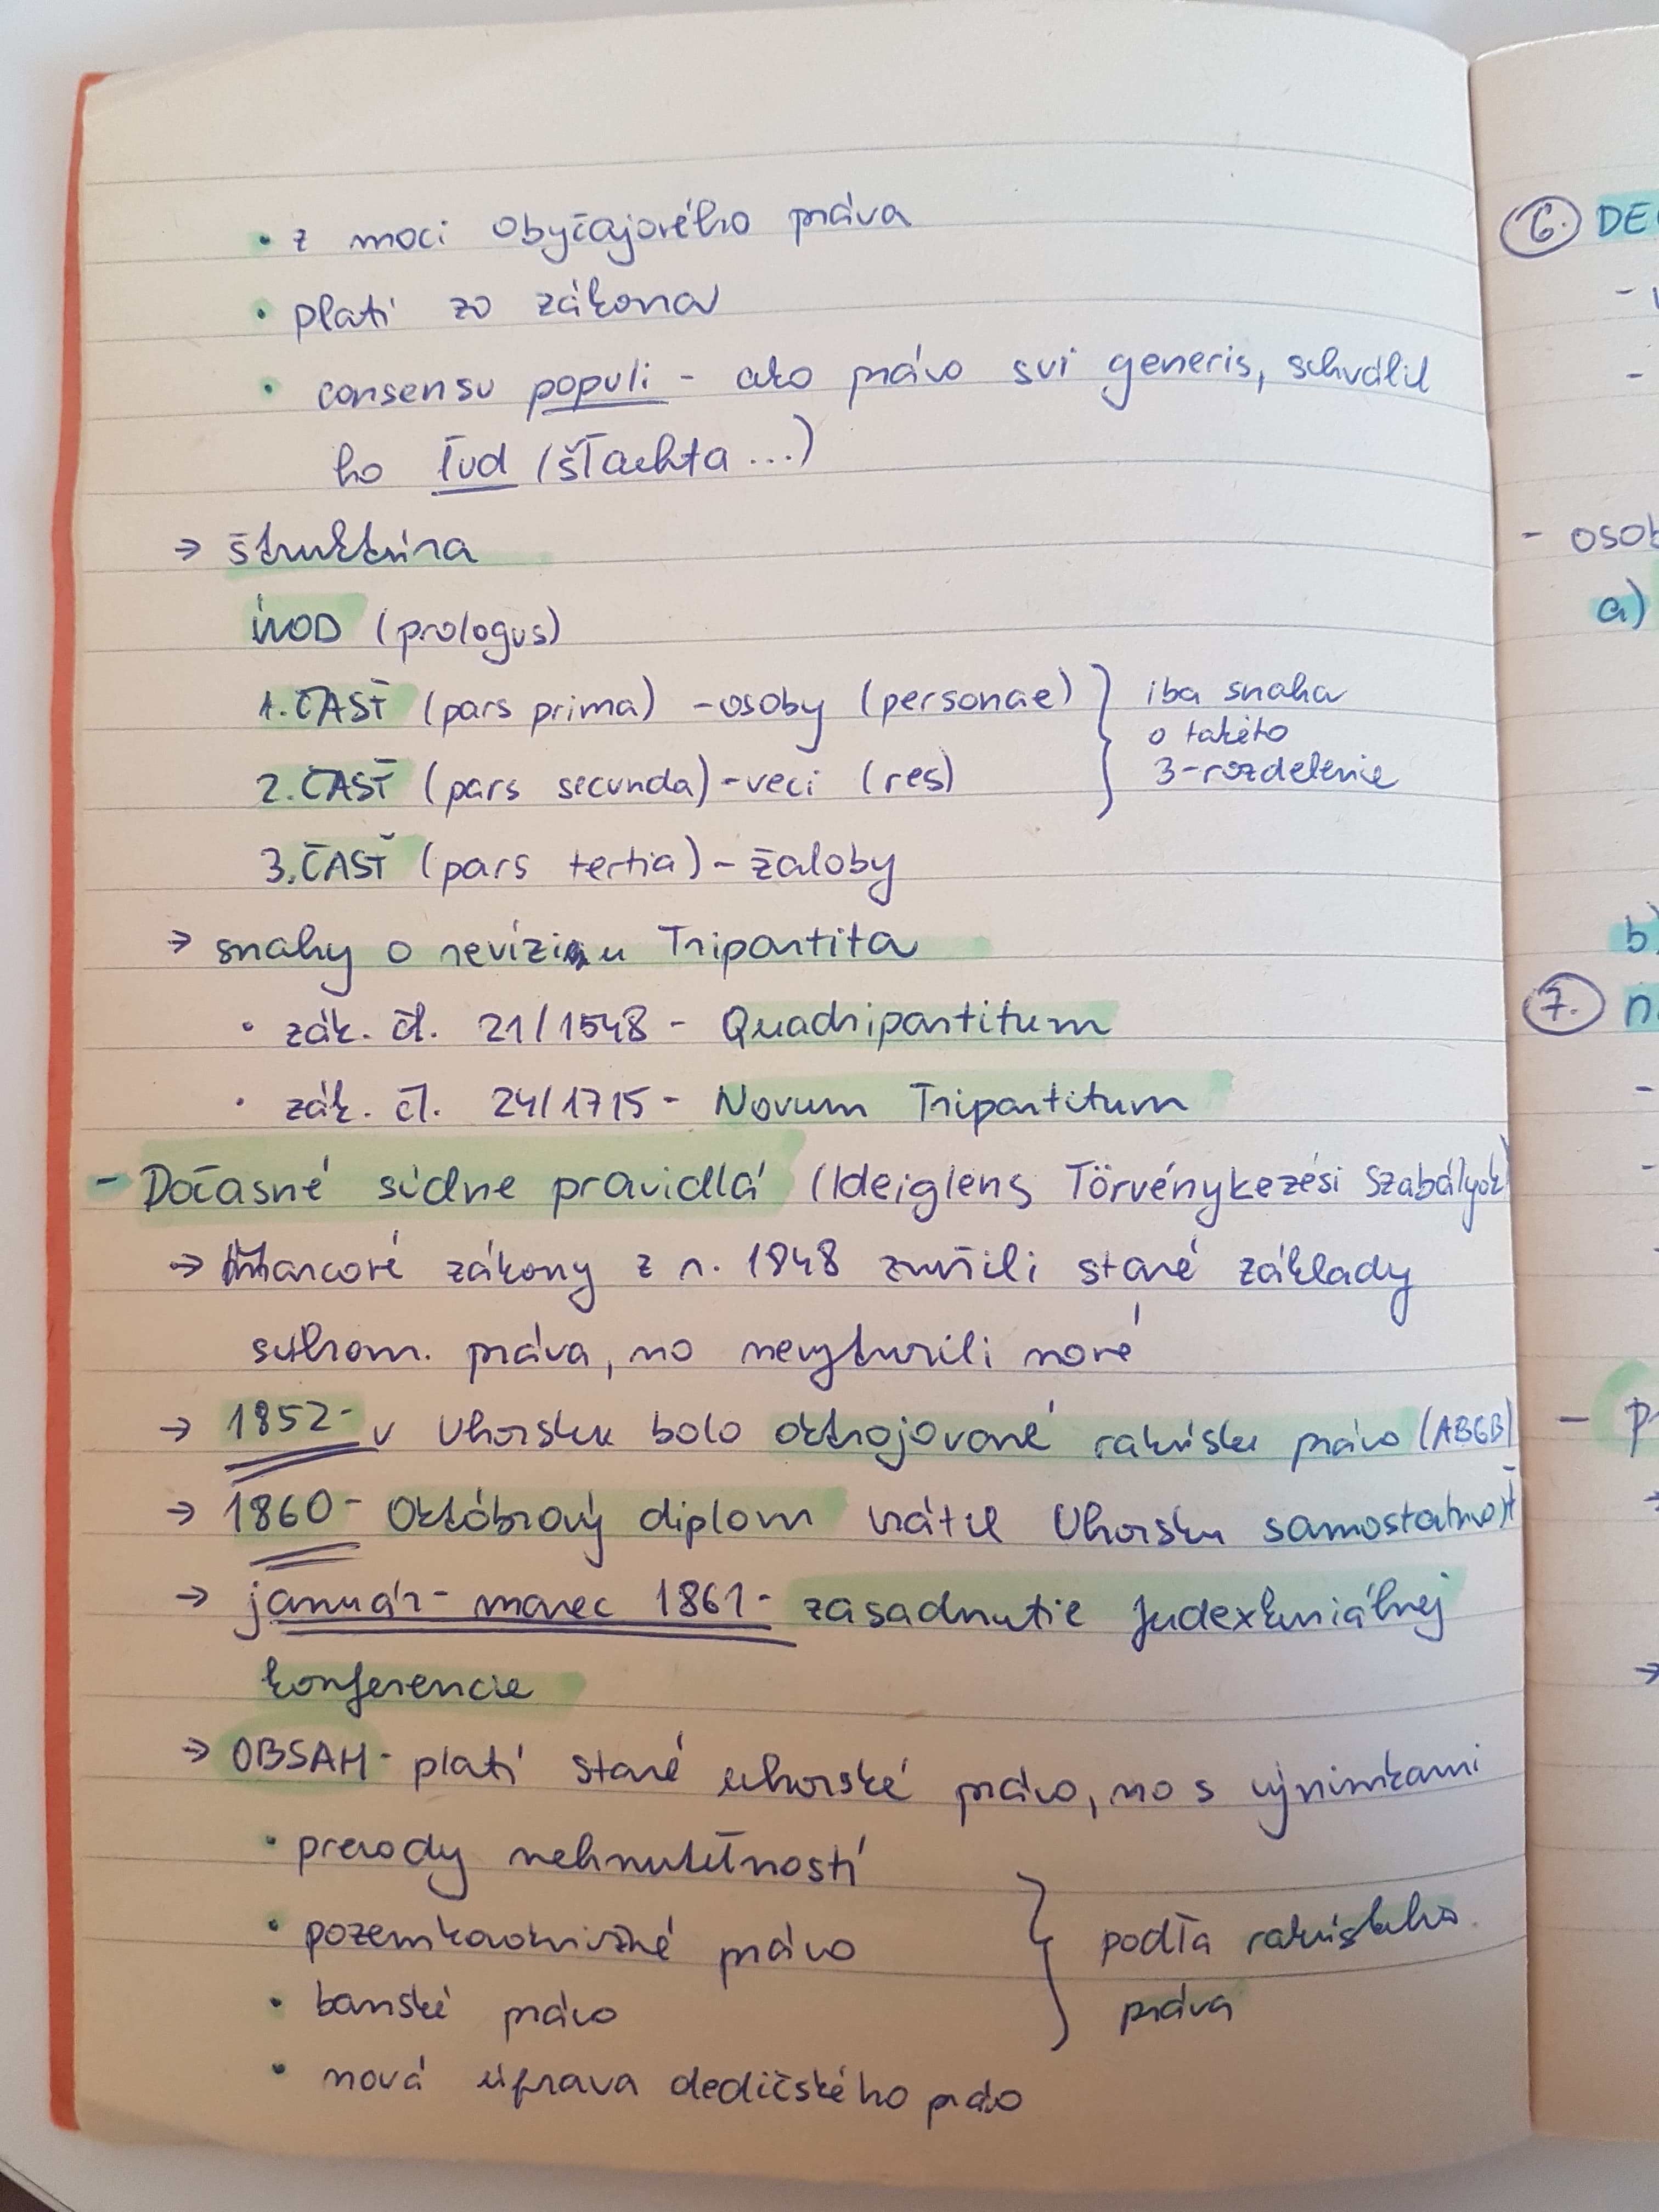 • z moci obyčajového práva
• platí zo zákona
• consensu populi - ako právo sui generis, schválil
ho ľud (šľachta...)
→ štruktúra
ÚVOD (prologus)
1. ČASŤ (pars prima) - osoby (personae) } iba snaha
o takéto
2. ČASŤ (pars secunda) - veci (res) 3-rozdelenie
3. ČASŤ (pars tertia) - žaloby
→ snahy o revíziu Tripartita
• zák. čl. 21/1548 - Quadripartitum
• zák. čl. 24/1715 - Novum Tripartitum
- Dočasné súdne pravidlá (Ideiglens Törvénykezési Szabályok)
→ marcové zákony z r. 1848 zrušili staré základy
súkrom. práva, no nevytvorili nové
→ 1852 - v Uhorsku bolo oktrojované rakúske právo (ABGB)
→ 1860 - Októbrový diplom vrátil Uhorsku samostatnosť
→ január - marec 1861 - zasadnutie Judexkuriálnej
konferencie
→ OBSAH - platí staré uhorské právo, no s výnimkami
• prevody nehnuteľností
• pozemkovoknižné právo } podľa rakúskeho
• banské právo práva
• nová úprava dedičského práva
6. DE
- osob
a)
b)
7.